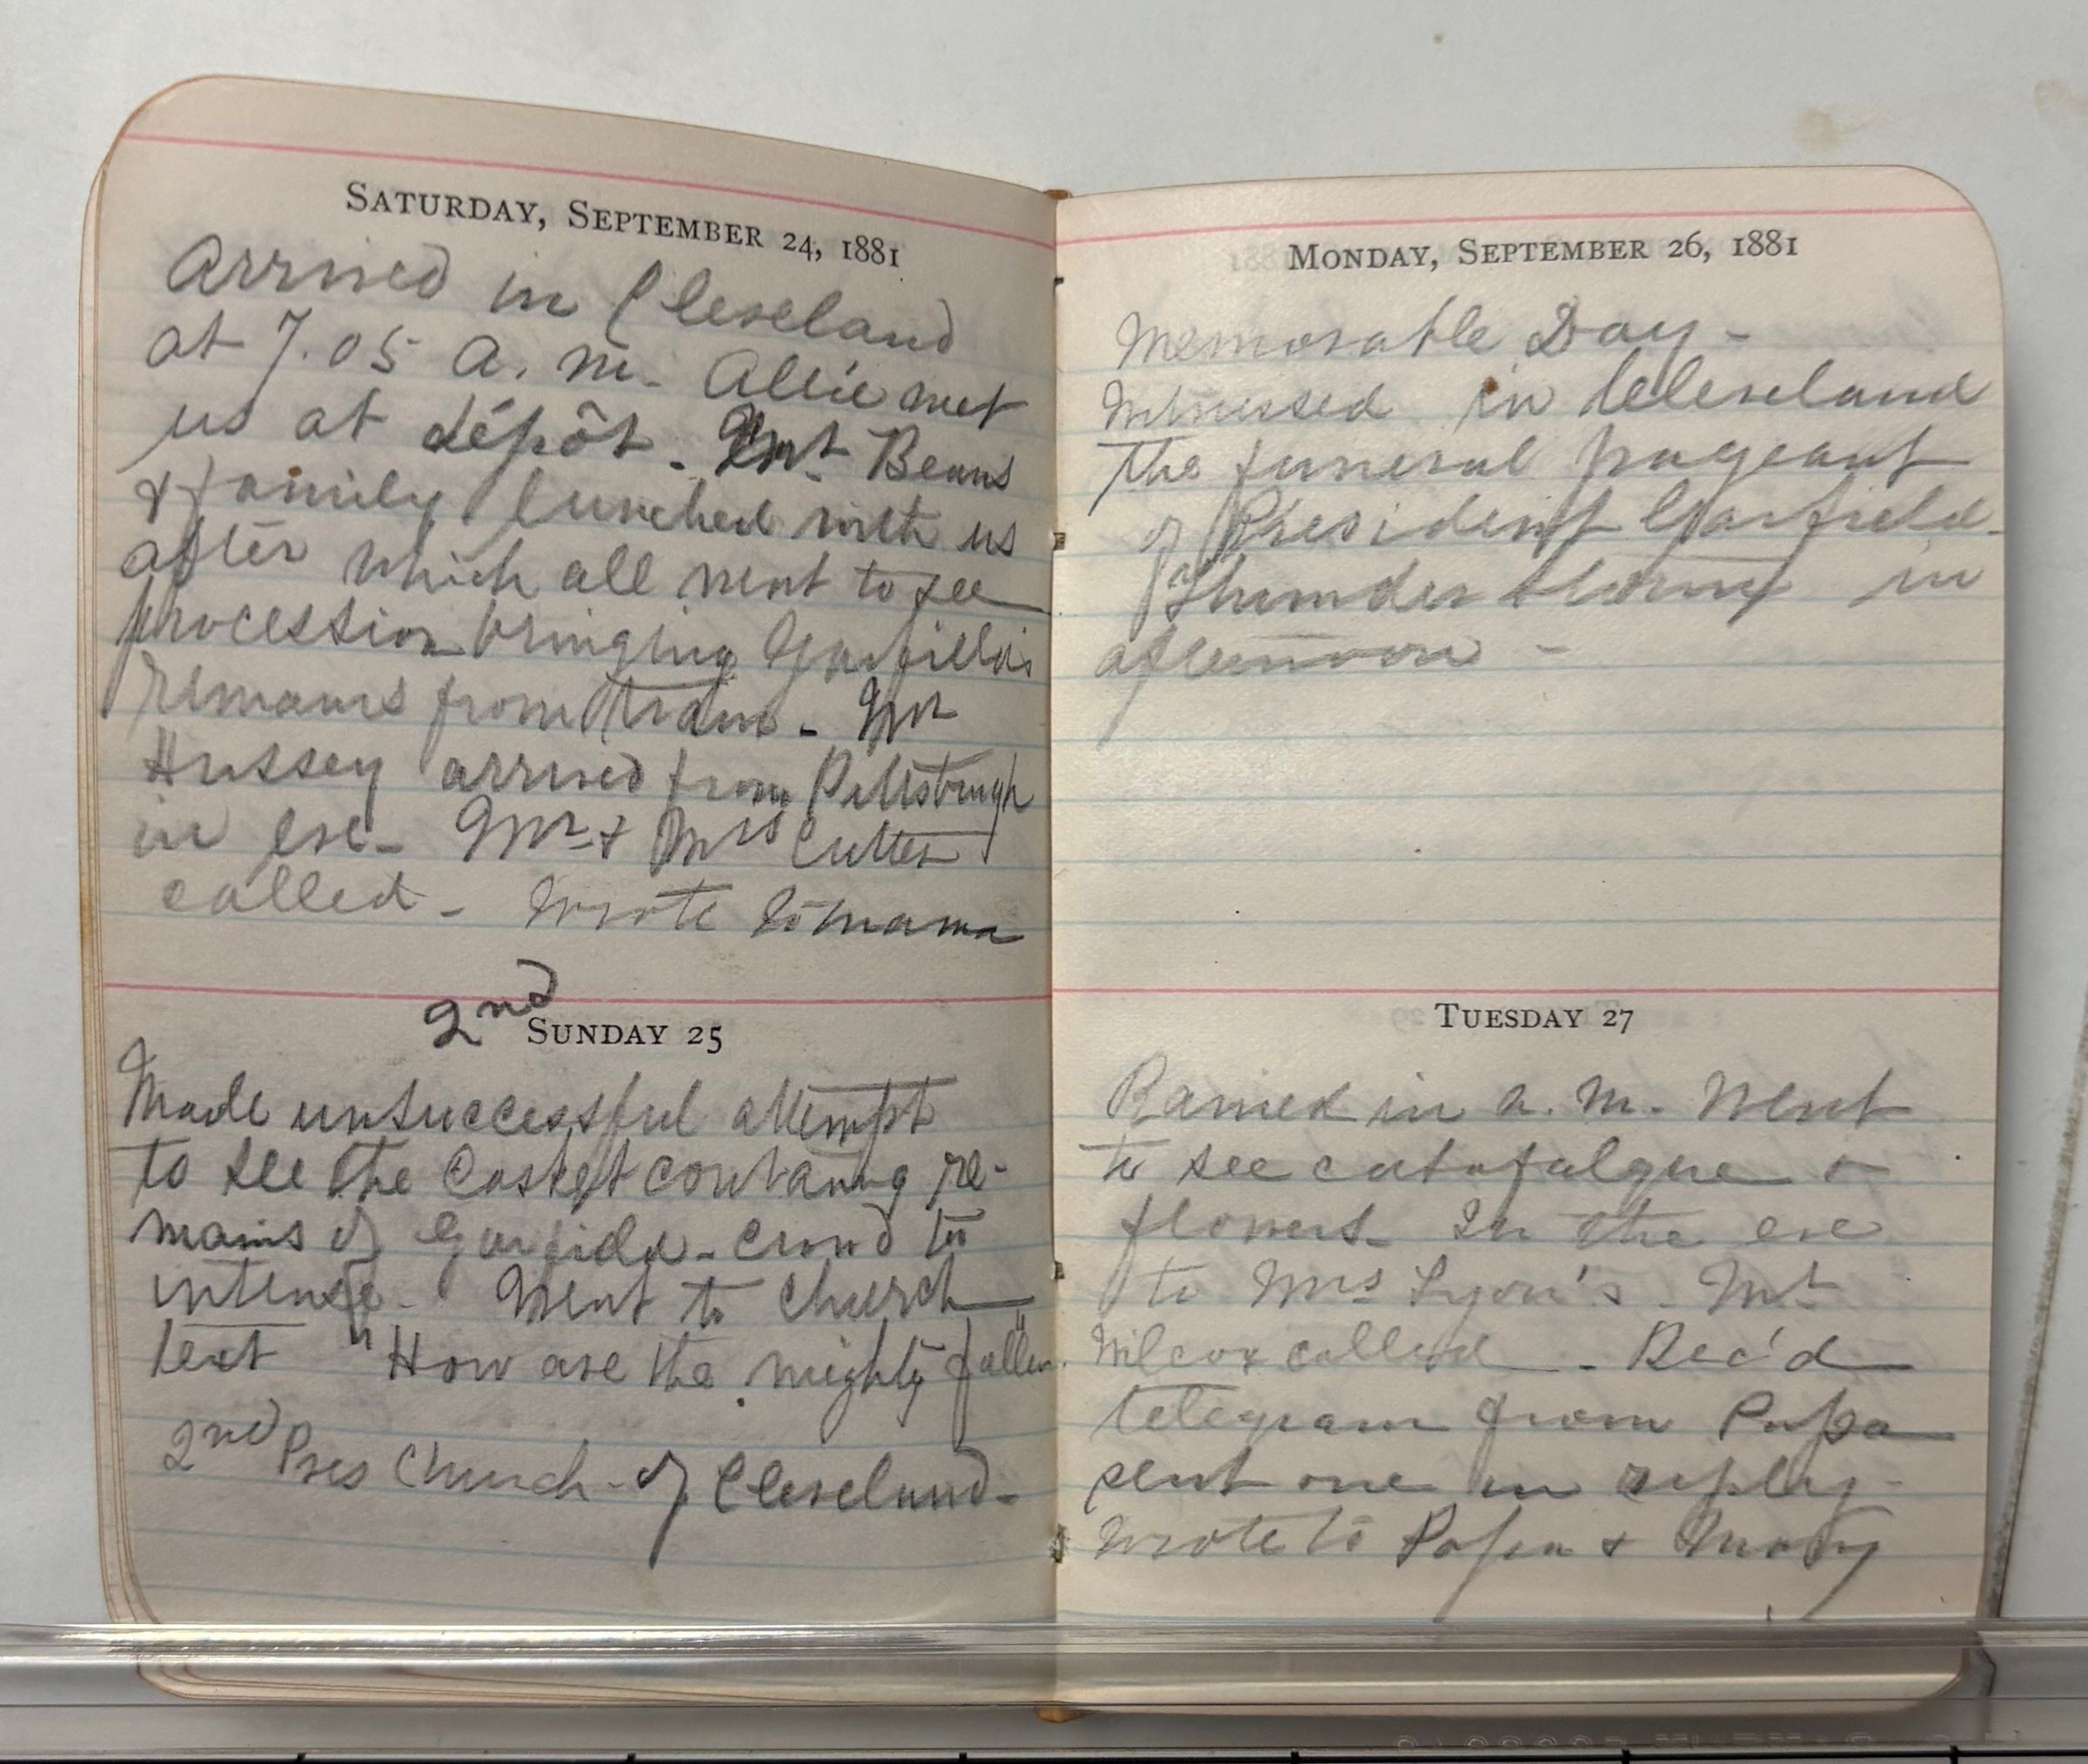 SATURDAY, SEPTEMBER 24, 1881
Arrived in Cleveland
at 7.05 A. M. Allie met
us at dépôt. Mr Beans
& family lunched with us
after which all went to see
procession bringing Garfield's
remains from train - Mr
Hussey arrived from Pittsburgh
in eve - Mr & Mrs Cutter
called - Wrote to mama
2nd
SUNDAY 25
Made unsuccessful attempt
to see the casket containing re-
mains of Garfield - crowd too
intense - Went to church
text "How are the mighty fallen"
2nd Pres Church - of Cleveland -
MONDAY, SEPTEMBER 26, 1881
Memorable Day -
Witnessed in Cleveland
the funeral pageant
of President Garfield -
a
Thunder storm in
afternoon -
TUESDAY 27
Rained in a. m. Went
to see catafalque &
flowers - In the eve
to Mrs Lyon's - Mr
Wilcox called - Rec'd
telegram from Papa
sent one in reply -
Wrote to Papa & Mary